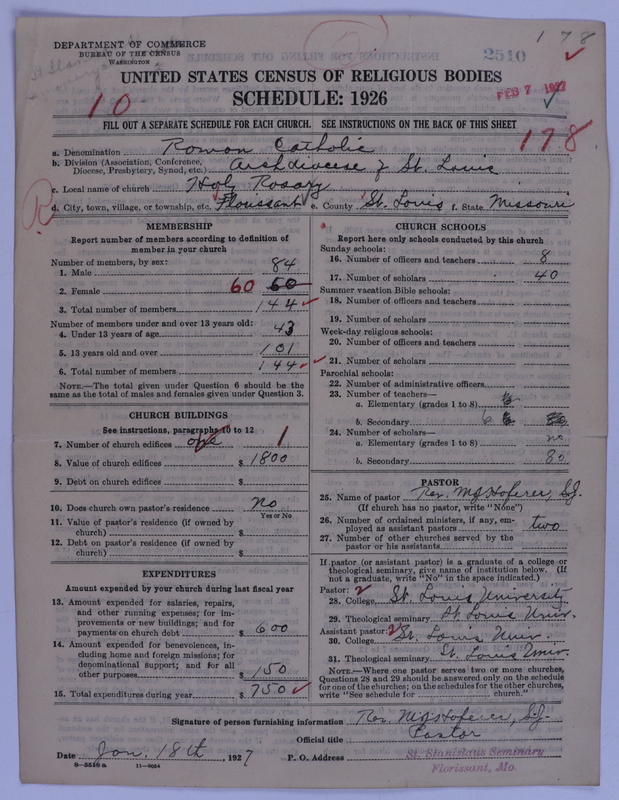 178
DEPARTMENT OF COMMERCE
BUREAU OF THE CENSUS
WASHINGTON
2510
UNITED STATES CENSUS OF RELIGIOUS BODIES
FEB 7 1927
10
SCHEDULE: 1926
FILL OUT A SEPARATE SCHEDULE FOR EACH CHURCH. SEE INSTRUCTIONS ON THE BACK OF THIS SHEET
178
a. Denomination Roman Catholic
b. Division (Association, Conference, Diocese, Presbytery, Synod, etc.) Archdiocese of St. Louis
c. Local name of church Holy Rosary
d. City, town, village, or township, etc. Florissant e. County St. Louis f. State Missouri
MEMBERSHIP
Report number of members according to definition of
member in your church
Number of members, by sex:
1. Male 84
2. Female 60 60
3. Total number of members 144
Number of members under and over 13 years old:
4. Under 13 years of age 43
5. 13 years old and over 101
6. Total number of members 144
NOTE.—The total given under Question 6 should be the
same as the total of males and females given under Question 3.
CHURCH BUILDINGS
See instructions, paragraphs 10 to 12
7. Number of church edifices one 1
8. Value of church edifices $ 1800
9. Debt on church edifices $
10. Does church own pastor's residence no
Yes or No
11. Value of pastor's residence (if owned by
church) $
12. Debt on pastor's residence (if owned by
church) $
EXPENDITURES
Amount expended by your church during last fiscal year
13. Amount expended for salaries, repairs,
and other running expenses; for im-
provements or new buildings; and for
payments on church debt $ 600
14. Amount expended for benevolences, in-
cluding home and foreign missions; for
denominational support; and for all
other purposes 150
15. Total expenditures during year $ 750
CHURCH SCHOOLS
Report here only schools conducted by this church
Sunday schools:
16. Number of officers and teachers 8
17. Number of scholars 40
Summer vacation Bible schools:
18. Number of officers and teachers
19. Number of scholars
Week-day religious schools:
20. Number of officers and teachers
21. Number of scholars
Parochial schools:
22. Number of administrative officers
23. Number of teachers—
a. Elementary (grades 1 to 8)
b. Secondary 6
24. Number of scholars—
a. Elementary (grades 1 to 8) no
b. Secondary 80
PASTOR
25. Name of pastor Rev. M J Hoferer, S.J.
(If church has no pastor, write "None")
26. Number of ordained ministers, if any, em-
ployed as assistant pastors two
27. Number of other churches served by the
pastor or his assistants
If pastor (or assistant pastor) is a graduate of a college or
theological seminary, give name of institution below. (If
not a graduate, write "No" in the space indicated.)
Pastor: 2
28. College St. Louis University
29. Theological seminary St. Louis Univ.
Assistant pastor: 2
30. College St. Louis Univ.
31. Theological seminary St. Louis Univ.
NOTE.—Where one pastor serves two or more churches,
Questions 28 and 29 should be answered only on the schedule
for one of the churches; on the schedules for the other churches,
write "See schedule for church."
Signature of person furnishing information Rev. M J Hoferer, S.J.
Official title Pastor
Date Jan. 18th, 1927 P. O. Address St. Stanislaus Seminary
Florissant, Mo.
8—5518 a 11—9054